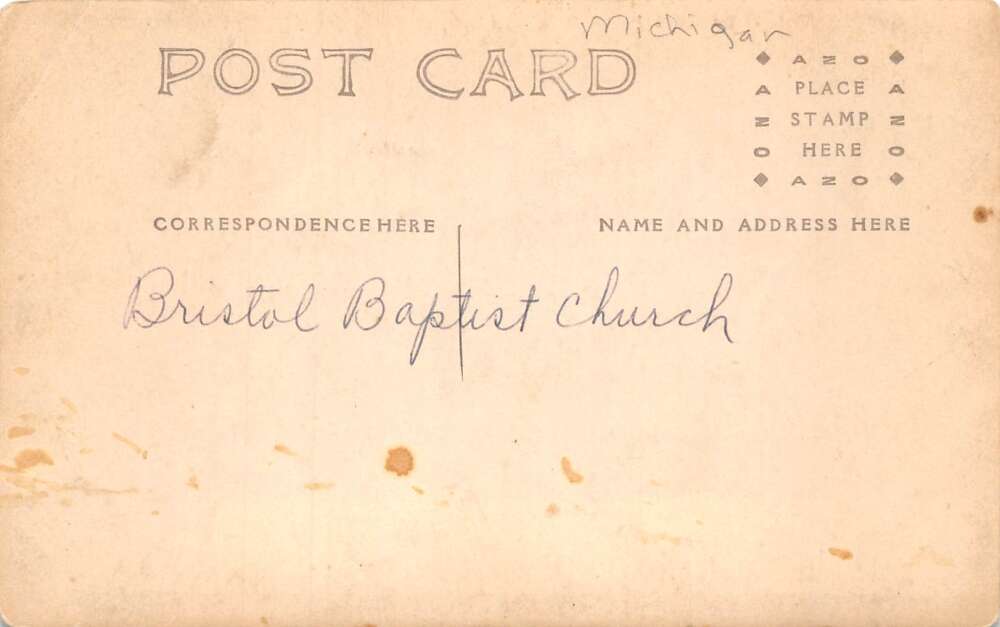 Michigan
POST CARD
AZO
A PLACE A
Z STAMP Z
O HERE O
AZO
CORRESPONDENCE HERE
NAME AND ADDRESS HERE
Bristol Baptist Church